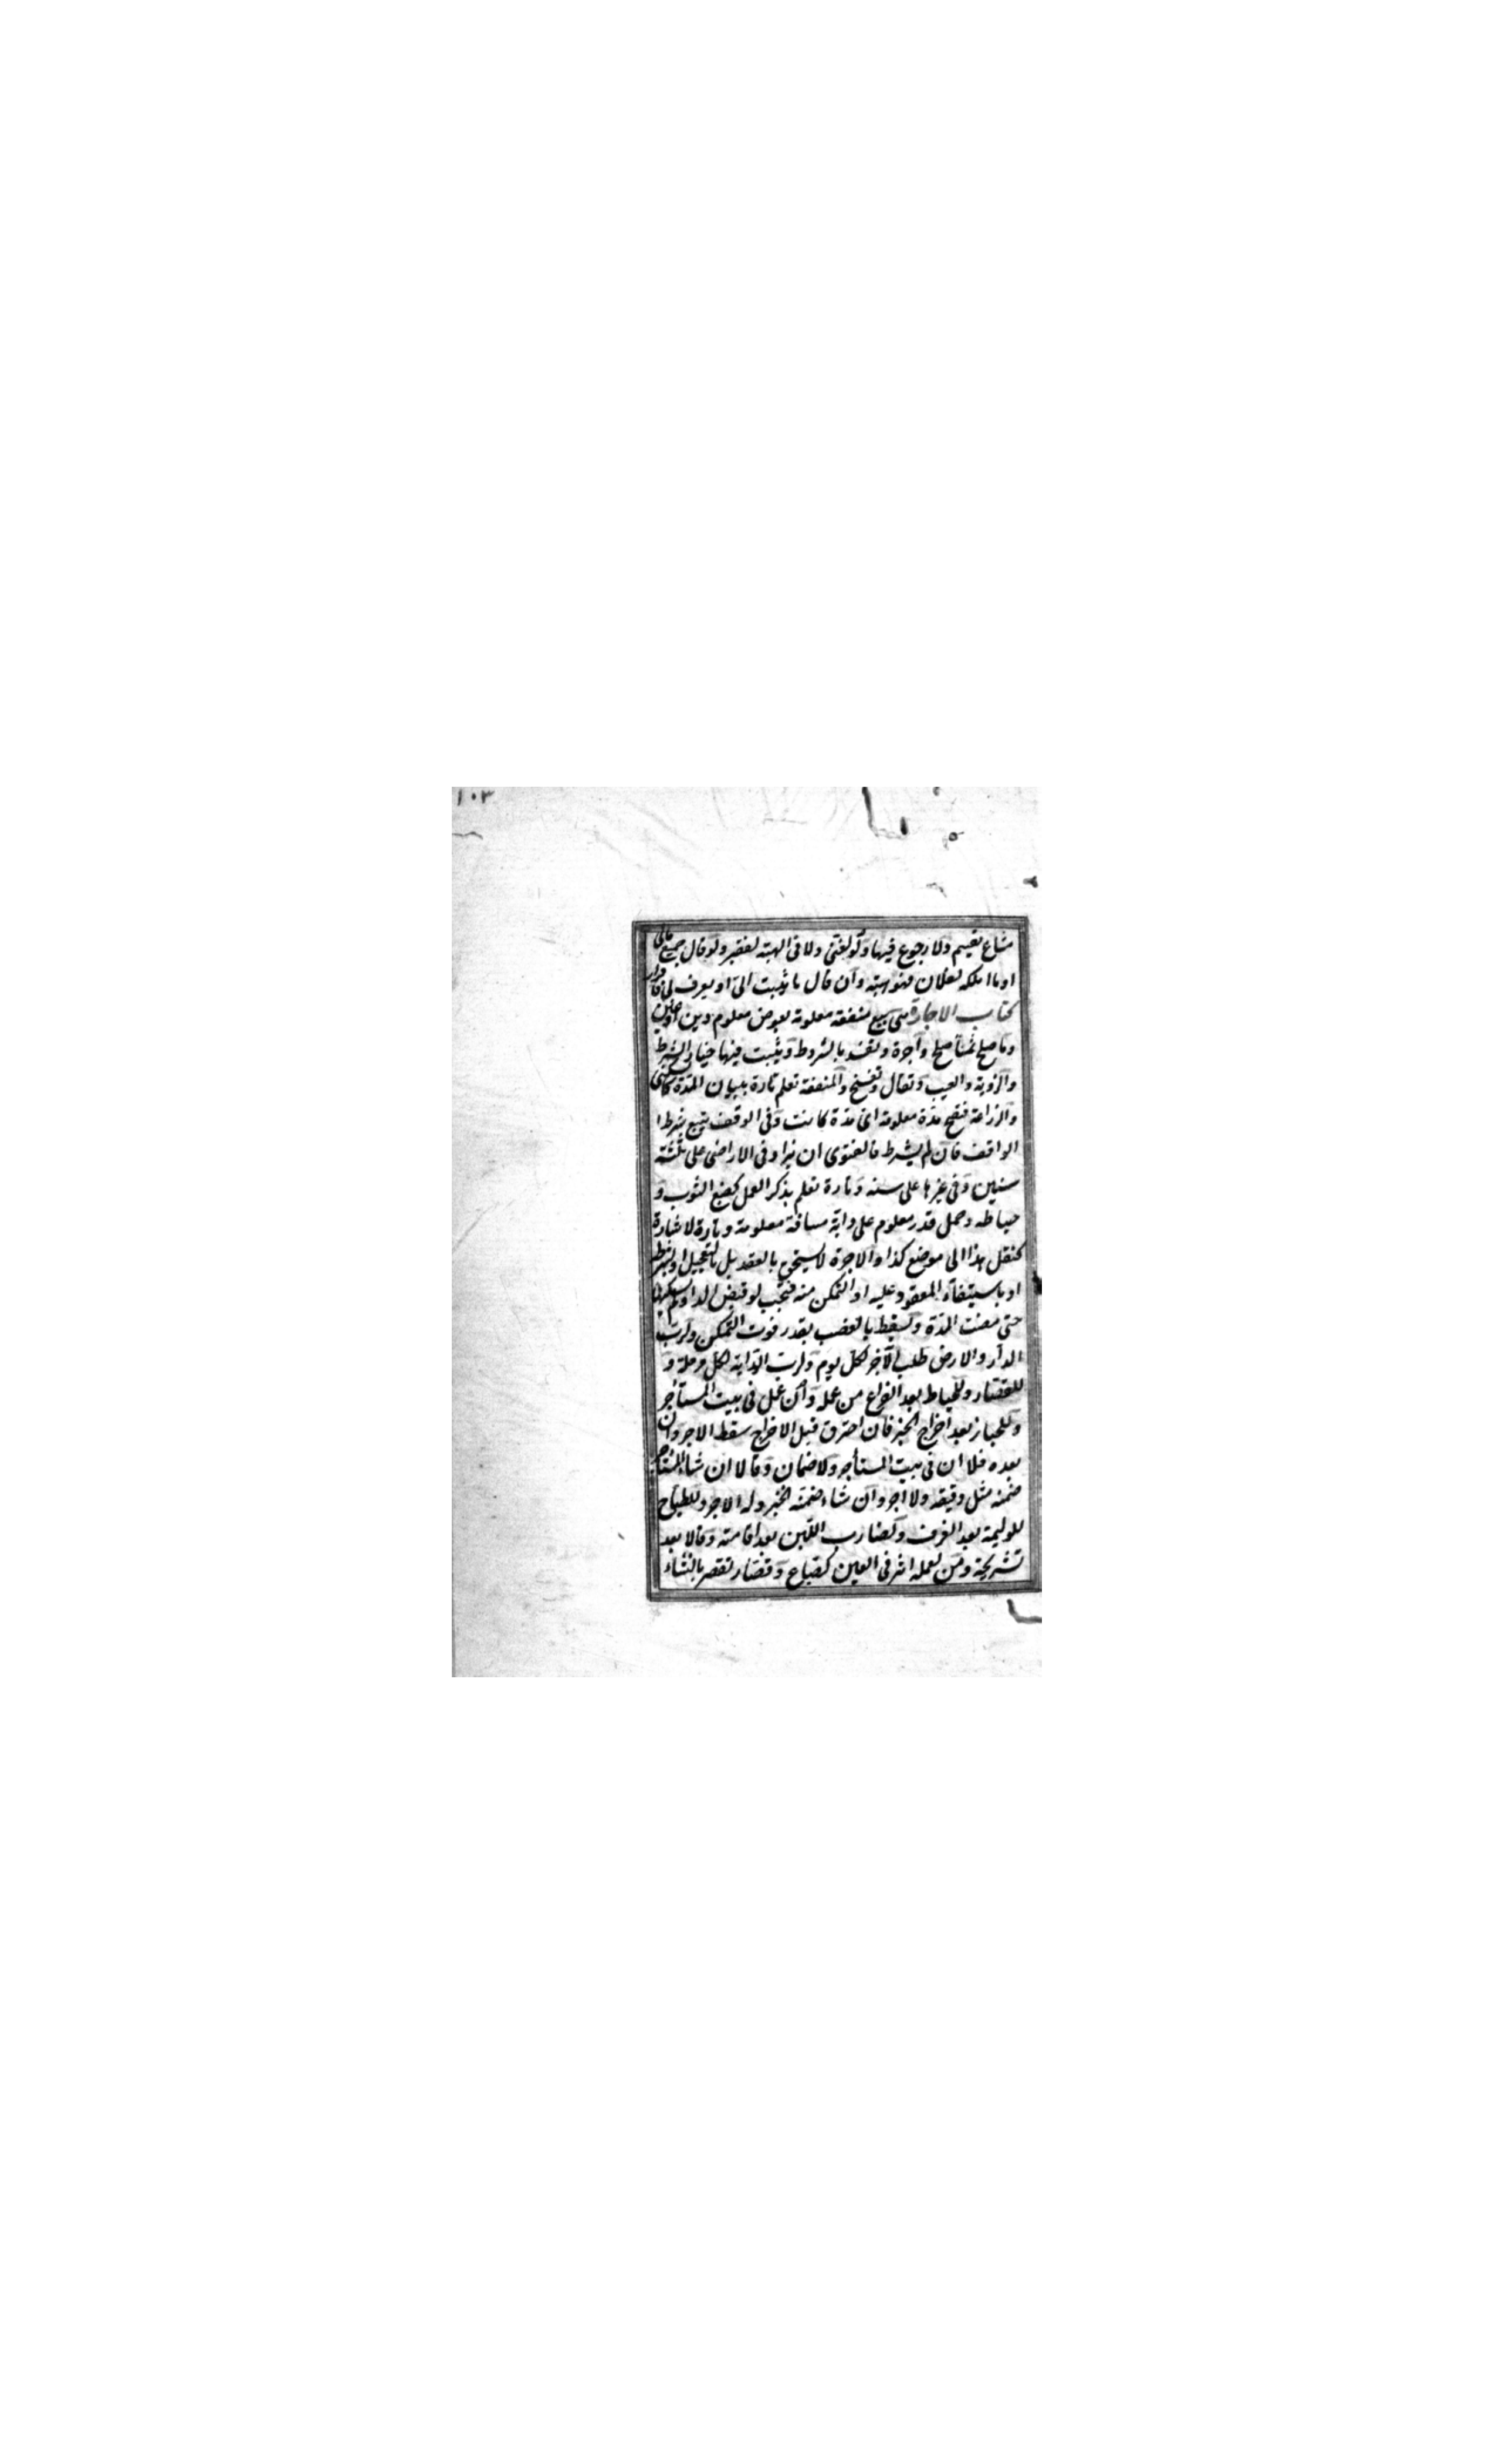 ١٠٣
مشاع يقسم ولا رجوع فيها ولو لغنى ولا فى الهبة لفقير ولو قال جميع مالى
او ما املكه لفلان فهو هبة وان قال ما ينسب الىّ او يعرف لى فاقرار
كتاب الاجارة هى بيع منفعة معلومة بعوض معلوم دين او عين
وما صلح ثمنا صلح اجرة وتفسد بالشروط ويثبت فيها خيار الشرط
والرؤية والعيب وتقال وتفسخ والمنفعة تعلم تارة ببيان المدة كالسكنى
والزراعة فتصح مدة معلومة اى مدة كانت وفى الوقف يتبع شرط
الواقف فان لم يشرط فالفتوى ان يزاد فى الاراضى على ثلثة
سنين وفى غيرها على سنه وتارة تعلم بذكر العمل كصبغ الثوب و
خياطه وحمل قدر معلوم على دابة مسافة معلومة وتارة لاشارة
كنقل هذا الى موضع كذا والاجرة لا يستحق بالعقد بل بالتعجيل او بشرطه
او باستيفاء المعقود عليه او التمكن منه فتجب لو قبض الدار ولم يسكنها
حتى مضت المدة وتسقط بالغصب بقدر فوت التمكن ولرب
الدار والارض طلب الاجر لكل يوم ولرب الدابة لكل مرحلة و
للقصار وللخياط بعد الفراغ من عمله وان عمل فى بيت المستأجر
وللخباز بعد اخراج الخبز فان احترق قبل الاخراج سقط الاجر وان
بعده فلا ان فى بيت المستأجر ولا ضمان وقالا ان شاء المستأجر
ضمنه مثل دقيقه ولا اجر وان شاء ضمنه الخبز وله الاجر وللطباخ
للوليمة بعد الغرف ولضارب اللبن بعد اقامته وقالا بعد
تشريجه ومن لعمله اثر فى العين كصباغ وقصار يقصر بالنشاء